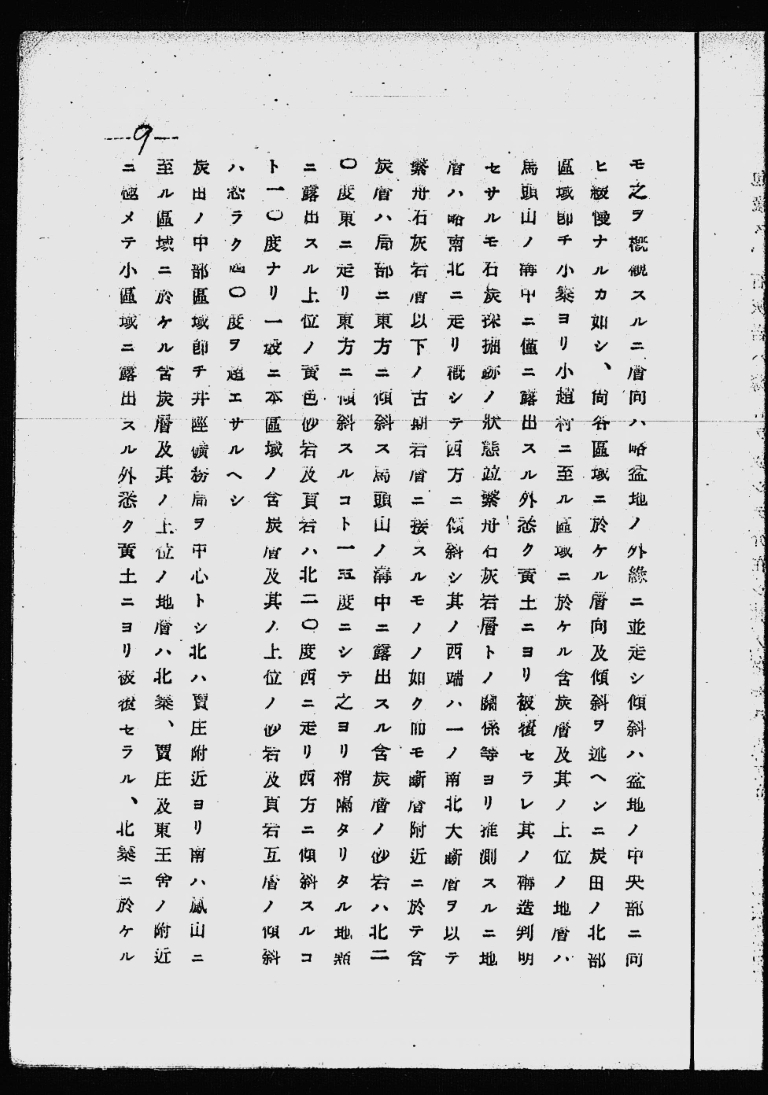 モ之ヲ概觀スルニ層向ハ略盆地ノ外緣ニ並走シ傾斜ハ盆地ノ中央部ニ向
ヒ緩慢ナルカ如シ、尙各區域ニ於ケル層向及傾斜ヲ述ヘンニ炭田ノ北部
區域卽チ小寨ヨリ小趙村ニ至ル區域ニ於ケル含炭層及其ノ上位ノ地層ハ
馬頭山ノ溝中ニ僅ニ露出スル外悉ク黃土ニヨリ被覆セラレ其ノ構造判明
セサルモ石炭採掘跡ノ狀態竝繁舟石灰岩層トノ關係等ヨリ推測スルニ地
層ハ略南北ニ走リ概シテ西方ニ傾斜シ其ノ西端ハ一ノ南北大斷層ヲ以テ
繁舟石灰岩層以下ノ古期岩層ニ接スルモノノ如ク而モ斷層附近ニ於テ含
炭層ハ局部ニ東方ニ傾斜ス馬頭山ノ溝中ニ露出スル含炭層ノ砂岩ハ北二
〇度東ニ走リ東方ニ傾斜スルコト一五度ニシテ之ヨリ稍隔タリタル地點
ニ露出スル上位ノ黃色砂岩及頁岩ハ北二〇度西ニ走リ西方ニ傾斜スルコ
ト一〇度ナリ一般ニ本區域ノ含炭層及其ノ上位ノ砂岩及頁岩互層ノ傾斜
ハ恐ラク四〇度ヲ超エサルヘシ
炭田ノ中部區域卽チ井陘礦務局ヲ中心トシ北ハ賈庄附近ヨリ南ハ鳳山ニ
至ル區域ニ於ケル含炭層及其ノ上位ノ地層ハ北寨、賈庄及東王舍ノ附近
ニ極メテ小區域ニ露出スル外悉ク黃土ニヨリ被覆セラル、北寨ニ於ケル
9